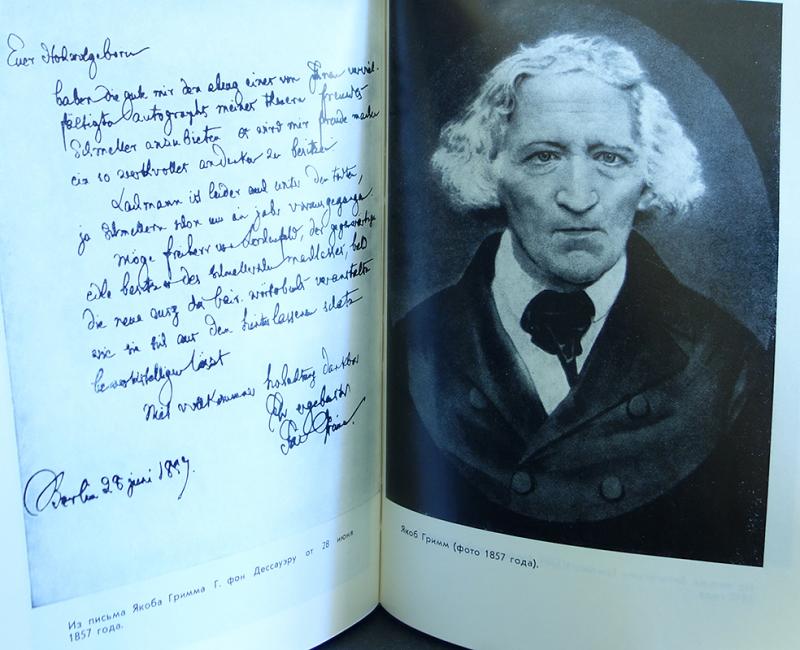 Euer Hochwolgeborn
haben die gute mir den abzug einer von Ihnen verviel-
fältigten autographs meines theuern freundes
Schmeller anzubieten es wird mir freude machen
ein so werthvolles andenken zu besitzen
Lachmann ist leider auch unter den todten,
ja Schmellern schon um ein jahr vorausgegangen.
möge freiherr von der gegenwärtige
besitzer des Schmellerschen
die neue ausg. der bair. wörterbuch veranstalten
wie sie hinterlassenen schatz
bewerkstelligen lässt
Mit vollkommner hochachtung dankbar
Ihr ergebenster
Jac Grimm.
Berlin 28 juni 1857.
Из письма Якоба Гримма Г. фон Дессауэру от 28 июня
1857 года.
Якоб Гримм (фото 1857 года).